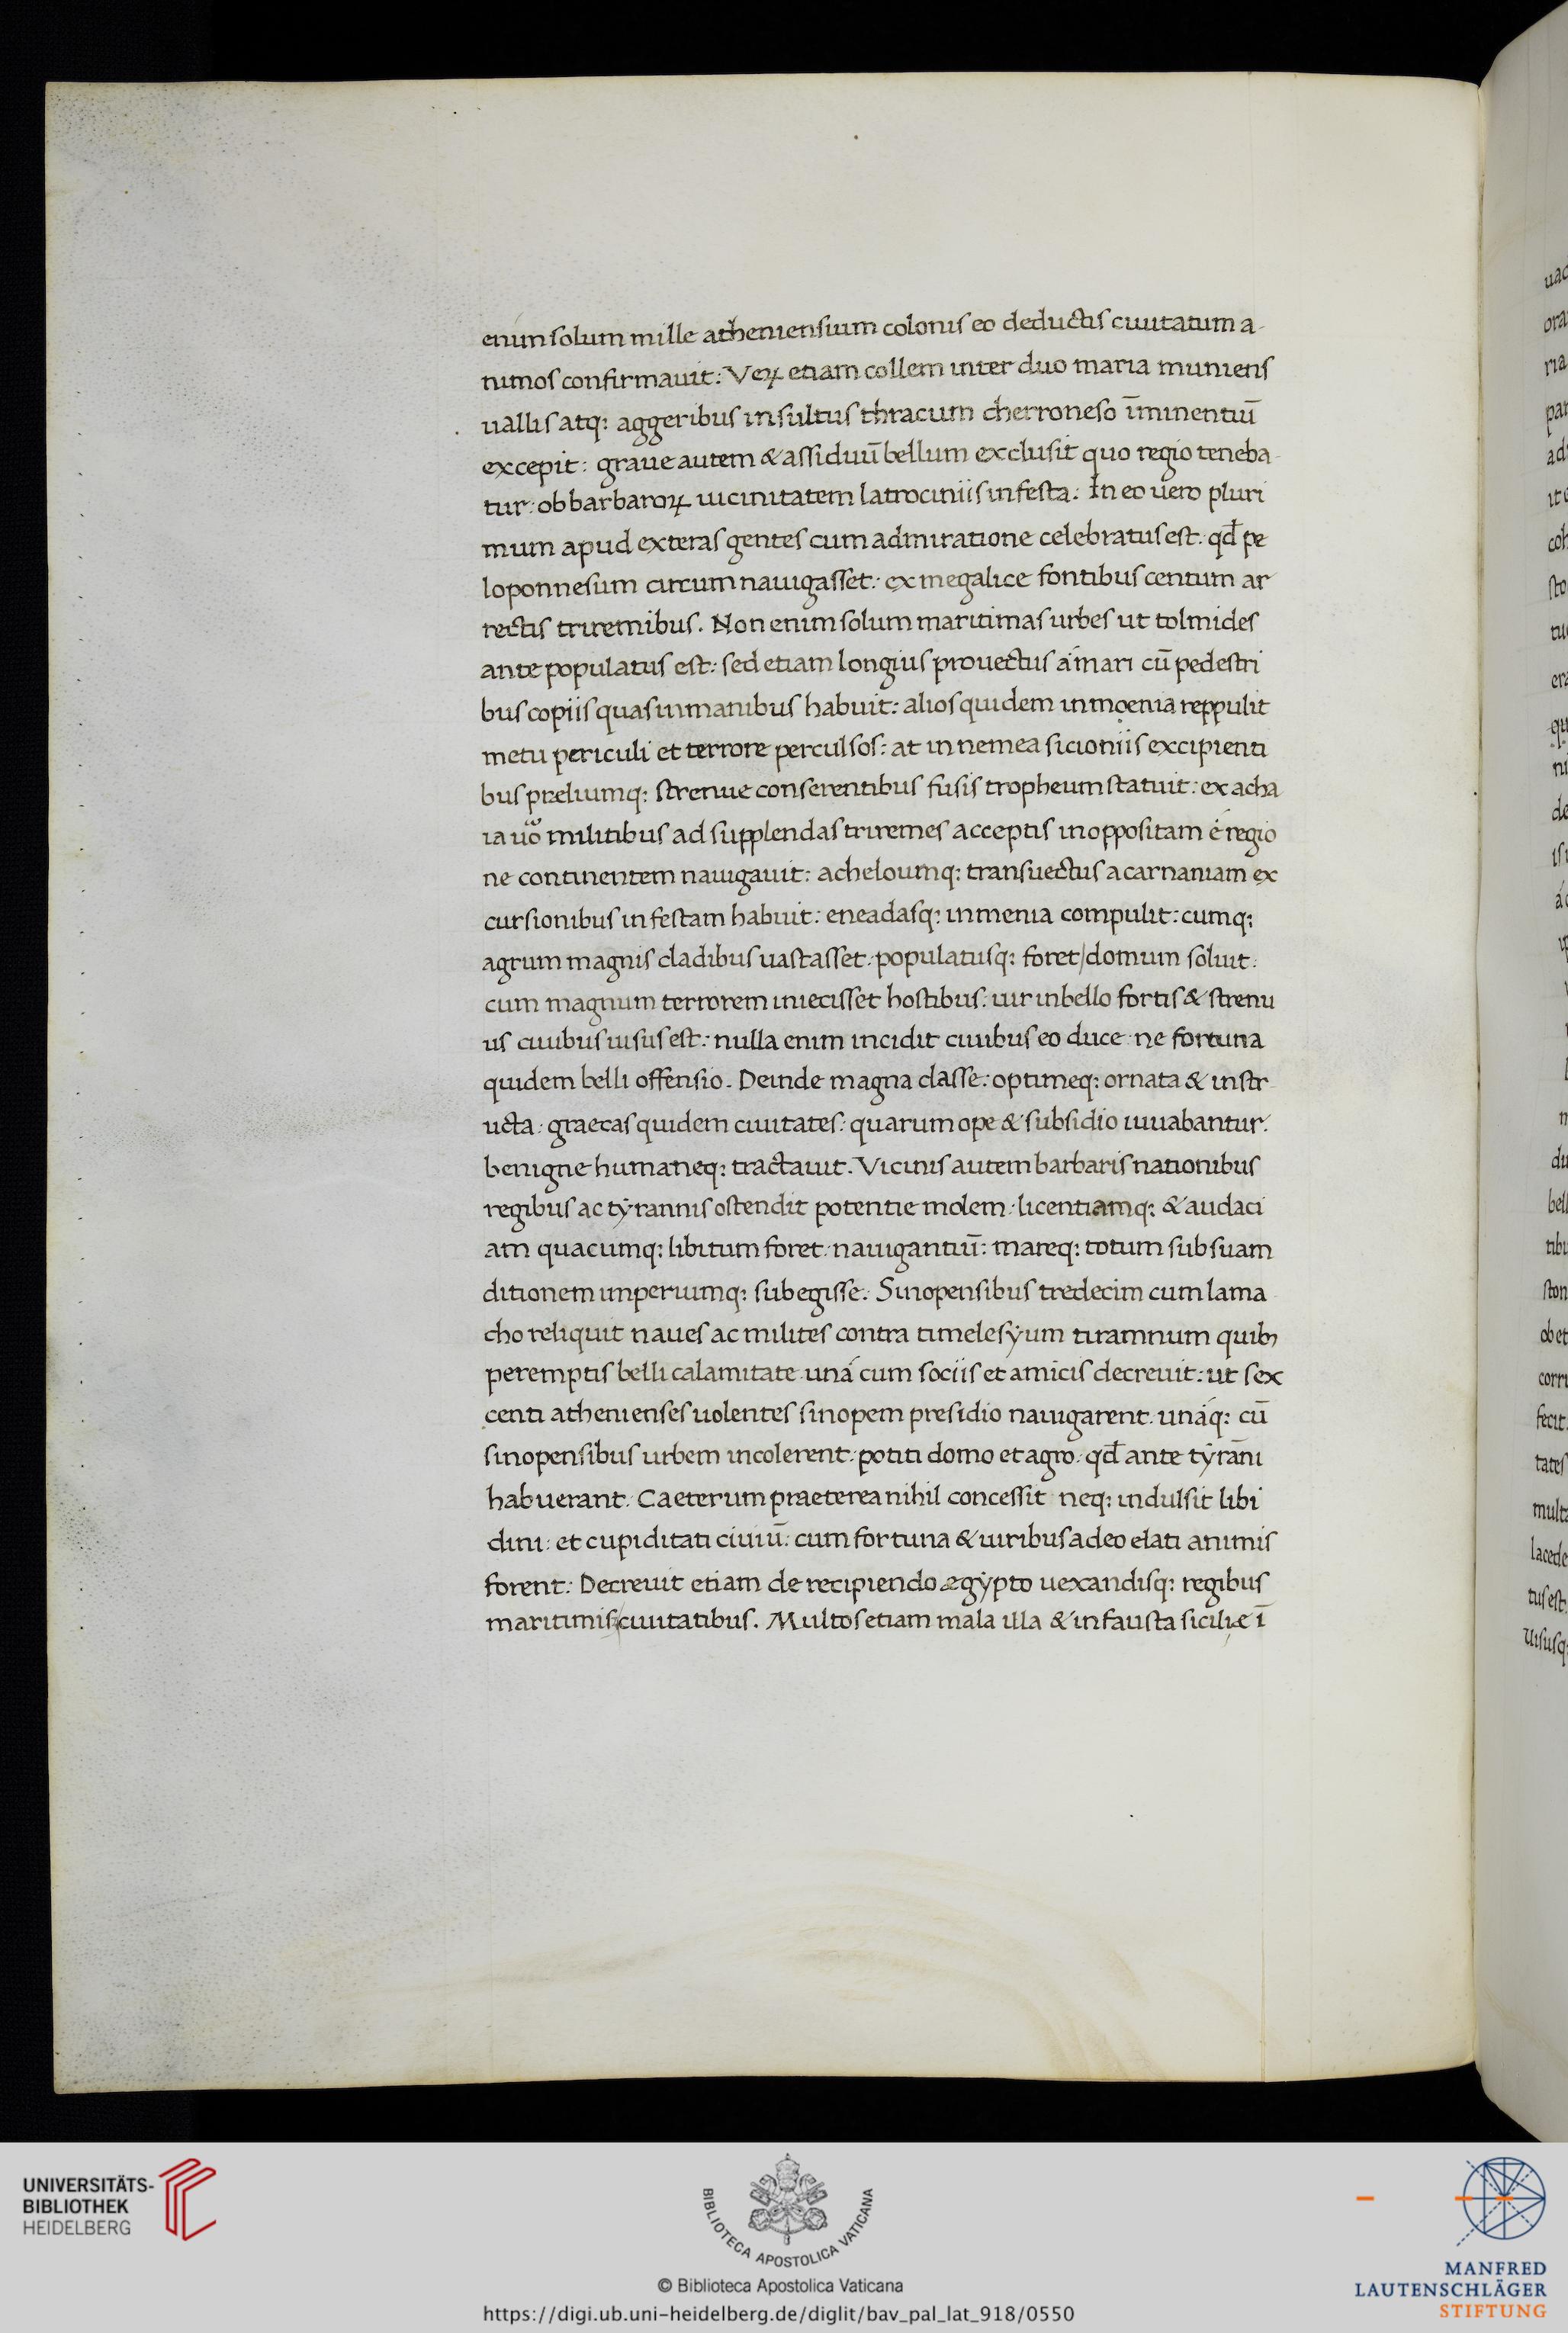 enim solum mille atheniensium colonis eo deductis ciuitatum a-
nimos confirmauit: Veꝝ etiam collem inter duo maria muniens
uallis atq; aggeribus insultus thracum cherroneso īminentiū
excepit: graue autem & assiduū bellum exclusit quo regio teneba-
tur: ob barbaroꝝ uicinitatem latrociniis infesta: In eo uero pluri
mum apud exteras gentes cum admiratione celebratus est: qđ pe
loponnesum circumnauigasset: ex megalice fontibus centum ar
rectis triremibus. Non enim solum maritimas urbes ut tolmides
ante populatus est: sed etiam longius prouectus á mari cū pedestri
bus copiis quas in manibus habuit: alios quidem in moenia reppulit
metu periculi et terrore perculsos: at in nemea sicioniis excipienti
bus preliumq; strenue conserentibus fusis tropheum statuit: ex acha
ia uō militibus ad supplendas triremes acceptis in oppositam é regio
ne continentem nauigauit: acheloumq; transuectus acarnaniam ex
cursionibus infestam habuit: eneadasq; in menia compulit: cumq;
agrum magnis cladibus uastasset: populatusq; foret/domum soluit:
cum magnum terrorem iniecisset hostibus: uir in bello fortis & strenu
us ciuibus uisus est: nulla enim incidit ciuibus eo duce ne fortuna
quidem belli offensio. Deinde magna classe: optimeq; ornata & instr
ucta: graecas quidem ciuitates: quarum ope & subsidio iuuabantur:
benigne humaneq; tractauit. Vicinis autem barbaris nationibus
regibus ac tyrannis ostendit potentie molem: licentiamq; & audaci
am quacumq; libitum foret: nauigantiū: mareq; totum sub suam
ditionem imperiumq; subegisse: Sinopensibus tredecim cum lama
cho reliquit naues ac milites contra timelesyum tiramnum quibꝫ
peremptis belli calamitate una´ cum sociis et amicis decreuit: ut sex
centi athenienses uolentes sinopem presidio nauigarent: unáq; cū
sinopensibus urbem incolerent: potiti domo et agro: qđ ante tyrāni
habuerant: Caeterum praeterea nihil concessit neq; indulsit libi
dini: et cupiditati ciuiū: cum fortuna & uiribus adeo elati animis
forent: Decreuit etiam de recipiendo ægypto uexandisq; regibus
maritimis ciuitatibus. Multos etiam mala illa & infausta siciliæ ī
UNIVERSITÄTS-
BIBLIOTHEK
HEIDELBERG
BIBLIOTECA APOSTOLICA VATICANA
© Biblioteca Apostolica Vaticana
https://digi.ub.uni-heidelberg.de/diglit/bav_pal_lat_918/0550
MANFRED
LAUTENSCHLÄGER
STIFTUNG